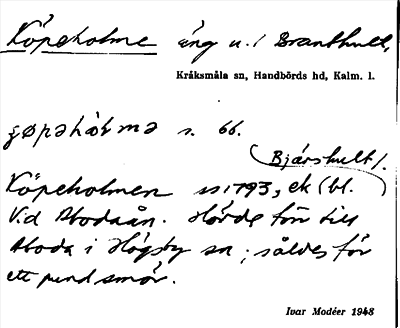 Köpeholme äng u. / Branthult,
Kråksmåla sn, Handbörds hd, Kalm. l.
s. 66.
Bjärshult /.
Köpeholmen 1793, ek (bl.
Vid Abodaån. Hörde förr till
Aboda i Högsby sn; såldes för
ett pund smör.
Ivar Modéer 1948